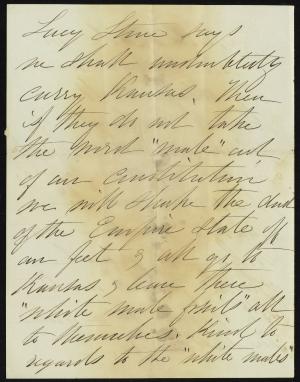 Lucy Stone says
we shall undoubtedly
carry Kansas. Then
if they do not take
the word "male" out
of our Constitution
we will shake the dust
of the Empire State off
our feet & all go to
Kansas & leave these
"white male fossils" all
to themselves. Kind
regards to the "white males"